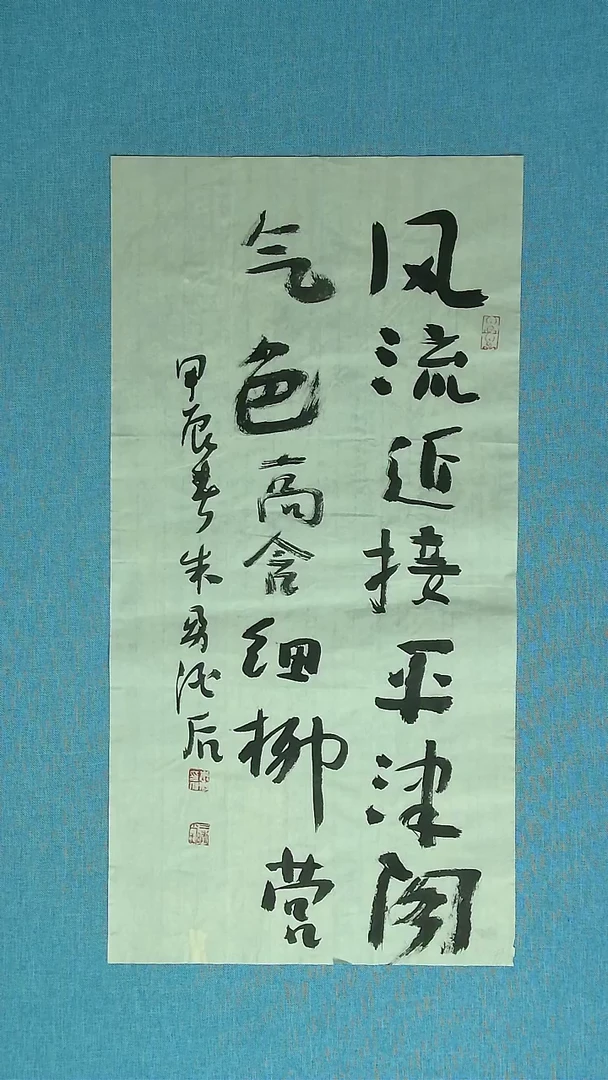 风流近接平津阁
气色高含细柳营
甲辰春朱